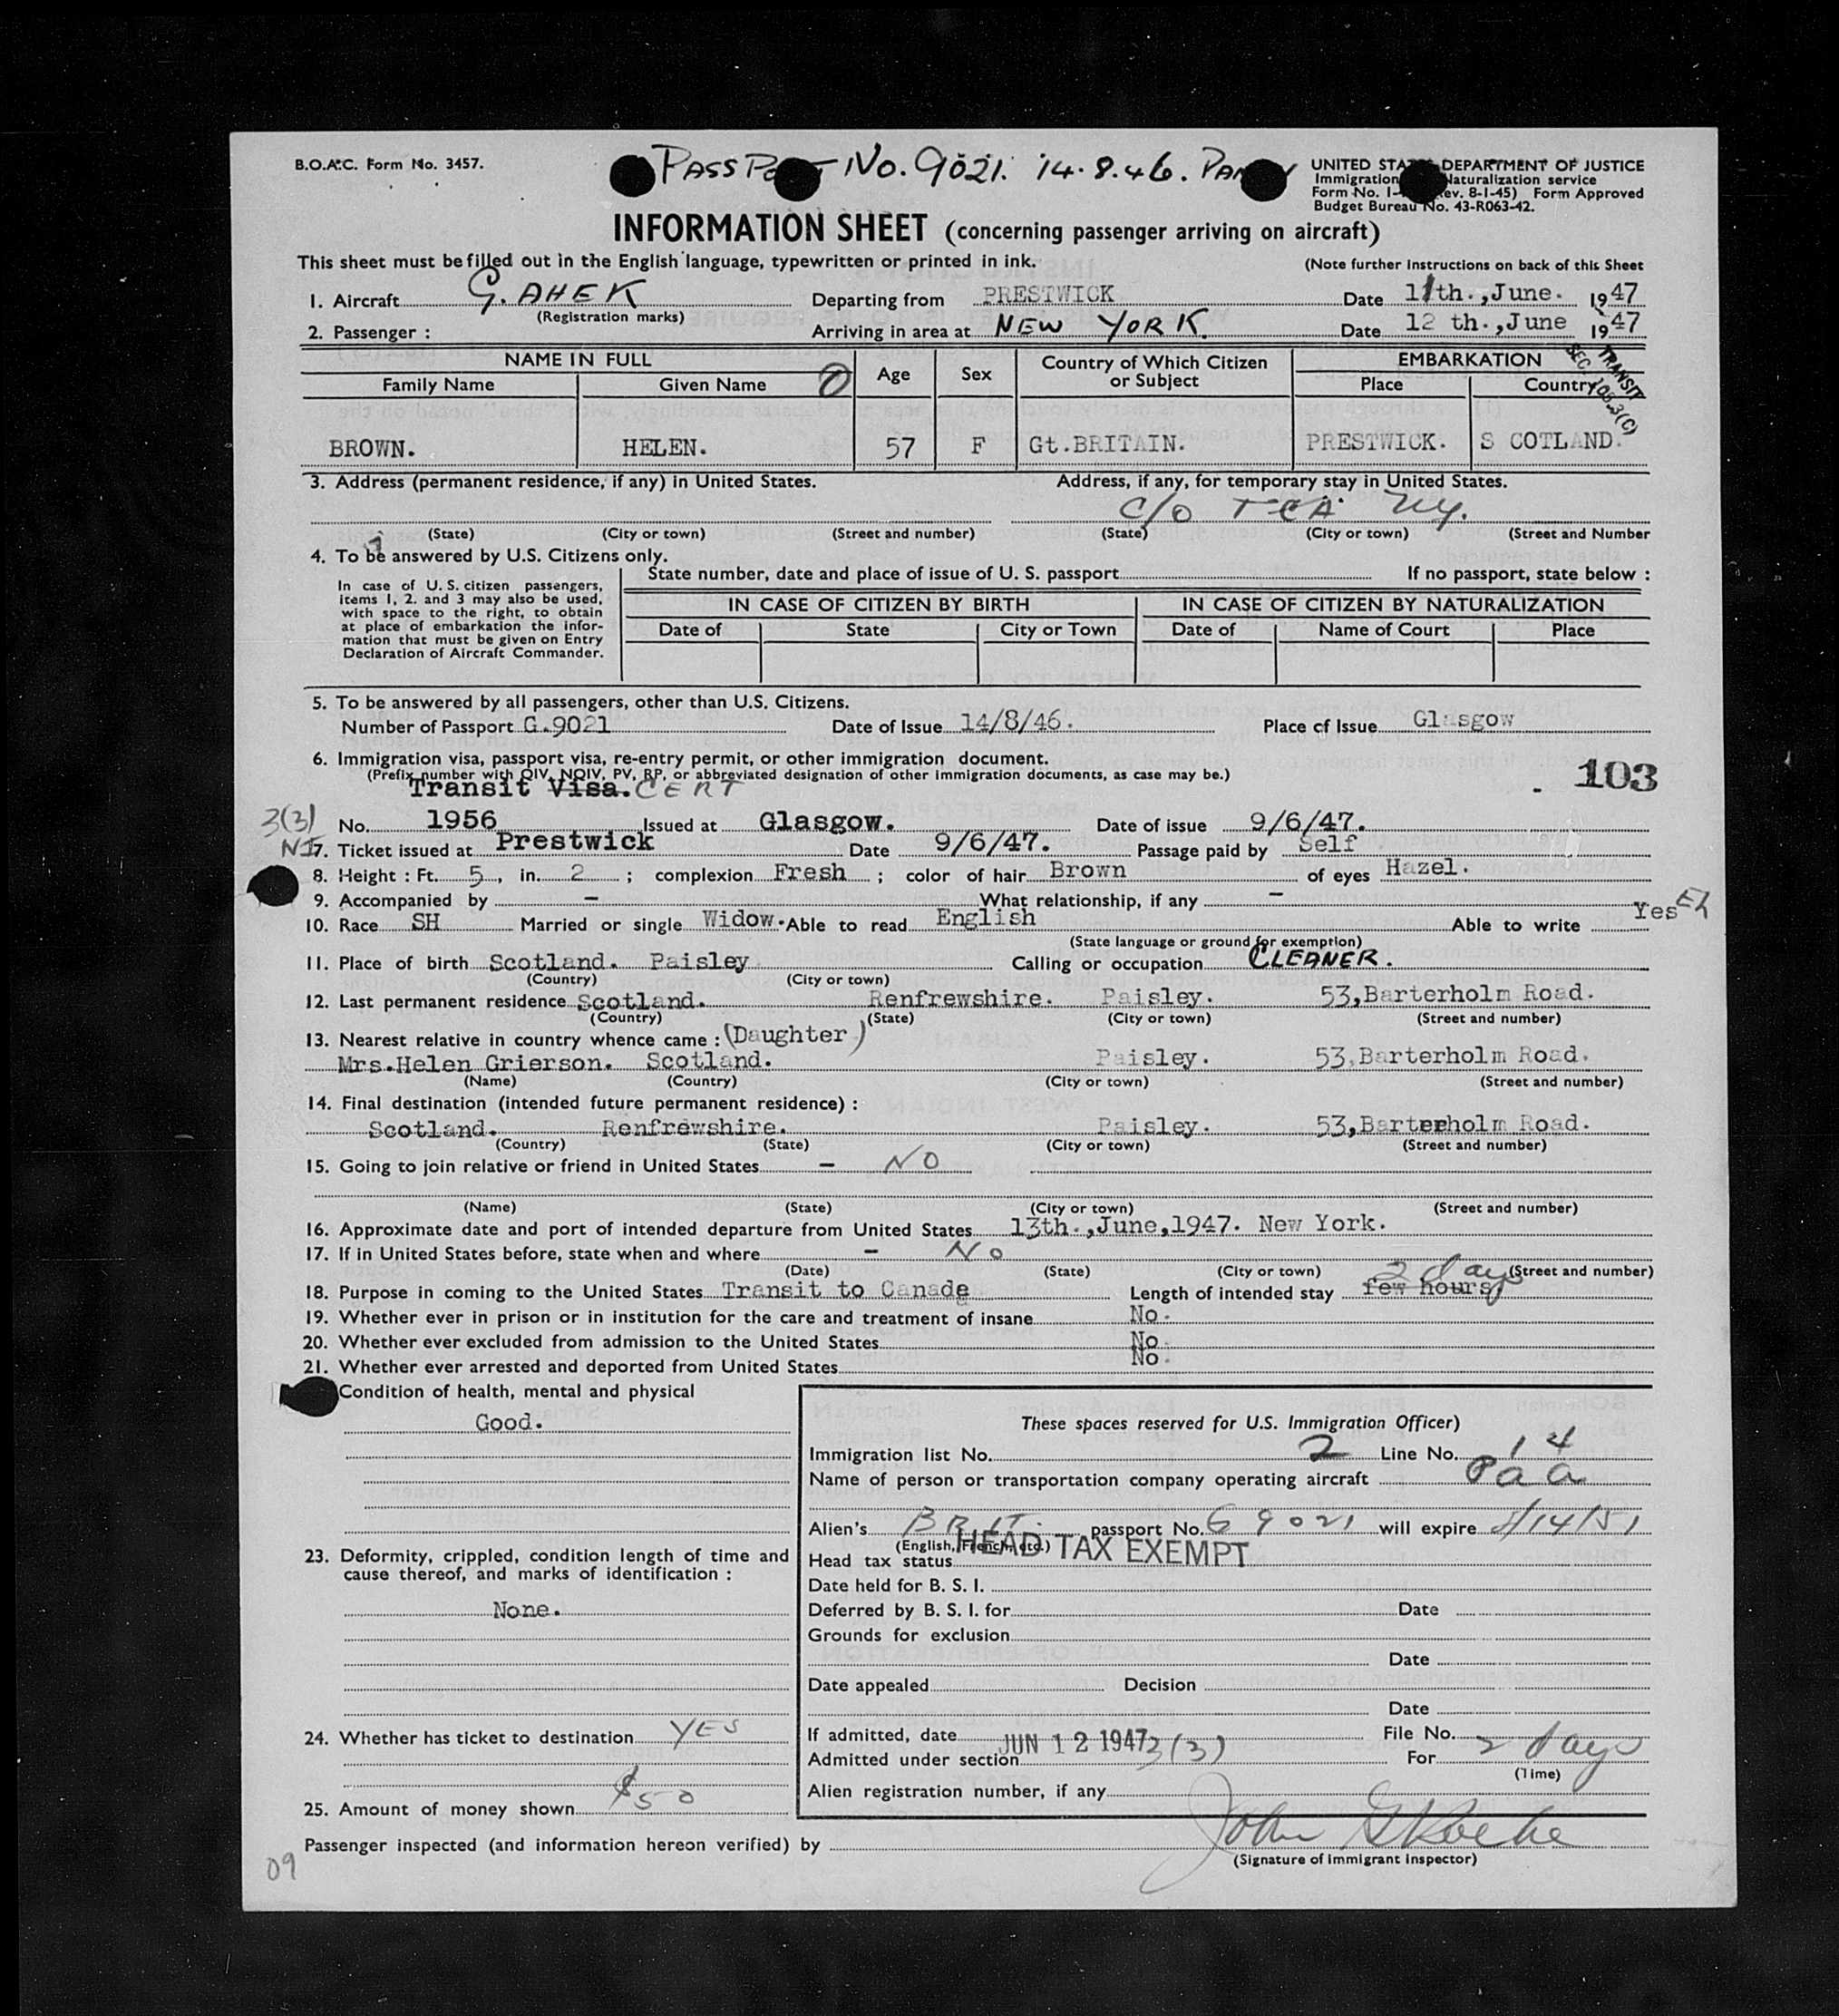 B.O.A.C. Form No. 3457.
No. 9021. 14.8.46.
UNITED STATES DEPARTMENT OF JUSTICE
Immigration Naturalization service
Form No. I- Rev. 8-1-45) Form Approved
Budget Bureau No. 43-R063-42.
INFORMATION SHEET (concerning passenger arriving on aircraft)
This sheet must be filled out in the English language, typewritten or printed in ink.
(Note further instructions on back of this Sheet
1. Aircraft G. AHEK Departing from PRESTWICK Date 11th.,June. 1947
(Registration marks)
2. Passenger : Arriving in area at NEW YORK. Date 12 th.,June 1947
TRANSIT
SEC. 105.3(C)
NAME IN FULL Age Sex Country of Which Citizen or Subject EMBARKATION
Family Name Given Name Place Country
BROWN. HELEN. 57 F Gt.BRITAIN. PRESTWICK. S COTLAND.
3. Address (permanent residence, if any) in United States. Address, if any, for temporary stay in United States.
C/O TCA NY.
(State) (City or town) (Street and number) (State) (City or town) (Street and Number
4. To be answered by U.S. Citizens only.
State number, date and place of issue of U. S. passport If no passport, state below :
In case of U. S. citizen passengers,
items 1, 2. and 3 may also be used,
with space to the right, to obtain
at place of embarkation the infor-
mation that must be given on Entry
Declaration of Aircraft Commander.
IN CASE OF CITIZEN BY BIRTH IN CASE OF CITIZEN BY NATURALIZATION
Date of State City or Town Date of Name of Court Place
5. To be answered by all passengers, other than U.S. Citizens.
Number of Passport G.9021 Date of Issue 14/8/46. Place of Issue Glasgow
6. Immigration visa, passport visa, re-entry permit, or other immigration document.
(Prefix number with QIV, NQIV, PV, RP, or abbreviated designation of other immigration documents, as case may be.)
Transit Visa. CERT
103
3(3) No. 1956 Issued at Glasgow. Date of issue 9/6/47.
7. Ticket issued at Prestwick Date 9/6/47. Passage paid by Self
8. Height : Ft. 5, in. 2 ; complexion Fresh ; color of hair Brown of eyes Hazel.
9. Accompanied by - What relationship, if any -
10. Race SH Married or single Widow. Able to read English Able to write Yes
(State language or ground for exemption)
11. Place of birth Scotland. Paisley Calling or occupation CLEANER.
(Country) (City or town)
12. Last permanent residence Scotland. Renfrewshire. Paisley. 53,Barterholm Road.
(Country) (State) (City or town) (Street and number)
13. Nearest relative in country whence came : (Daughter)
Mrs.Helen Grierson. Scotland. Paisley. 53,Barterholm Road.
(Name) (Country) (City or town) (Street and number)
14. Final destination (intended future permanent residence) :
Scotland. Renfrewshire. Paisley. 53,Barterholm Road.
(Country) (State) (City or town) (Street and number)
15. Going to join relative or friend in United States - NO
(Name) (State) (City or town) (Street and number)
16. Approximate date and port of intended departure from United States 13th.,June,1947. New York.
17. If in United States before, state when and where - No
(Date) (State) (City or town) (Street and number)
2 days
18. Purpose in coming to the United States Transit to Canada Length of intended stay few hours
19. Whether ever in prison or in institution for the care and treatment of insane No.
20. Whether ever excluded from admission to the United States No.
21. Whether ever arrested and deported from United States No.
Condition of health, mental and physical
Good.
These spaces reserved for U.S. Immigration Officer)
Immigration list No. 2 Line No. 14
Name of person or transportation company operating aircraft Paa
Alien's BRIT. passport No. G 9021 will expire 8/14/51
(English, French, etc.)
Head tax status HEAD TAX EXEMPT
23. Deformity, crippled, condition length of time and
cause thereof, and marks of identification :
None.
Date held for B. S. I.
Deferred by B. S. I. for Date
Grounds for exclusion
Date
Date appealed Decision
Date
24. Whether has ticket to destination YES
If admitted, date JUN 12 1947 File No.
Admitted under section 3(3) For 2 days
(Time)
Alien registration number, if any
25. Amount of money shown $50
Passenger inspected (and information hereon verified) by
(Signature of Immigrant Inspector)
09